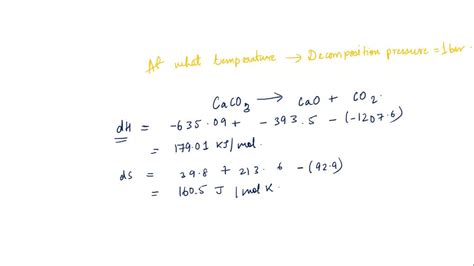 At what temperature → Decomposition pressure = 1 bar.
CaCO3 → CaO + CO2.
dH = -635.09 + -393.5 - (-1207.6)
= 179.01 KJ/mol.
ds = 39.8 + 213.6 - (92.9)
= 160.5 J/mol K.